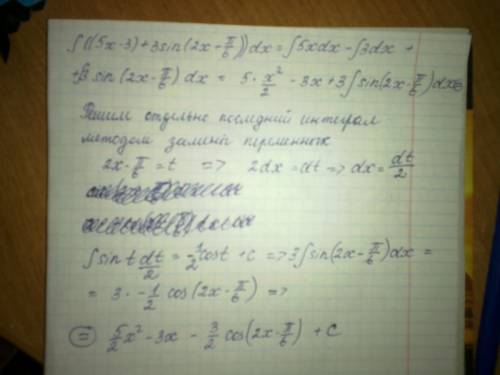 ∫((5x-3)+3sin(2x-π/6))dx = ∫5xdx - ∫3dx +
+∫3 sin(2x-π/6) dx = 5·x²/2 - 3x + 3∫sin(2x-π/6)dx =
Решим отдельно последний интеграл
методом замены переменных
2x-π/6 = t => 2dx = dt => dx = dt/2
∫sin t dt/2 = -1/2 cost + c => 3∫sin(2x-π/6)dx =
= 3·-1/2 cos(2x-π/6) =>
= 5/2 x² - 3x - 3/2 cos(2x-π/6) + C